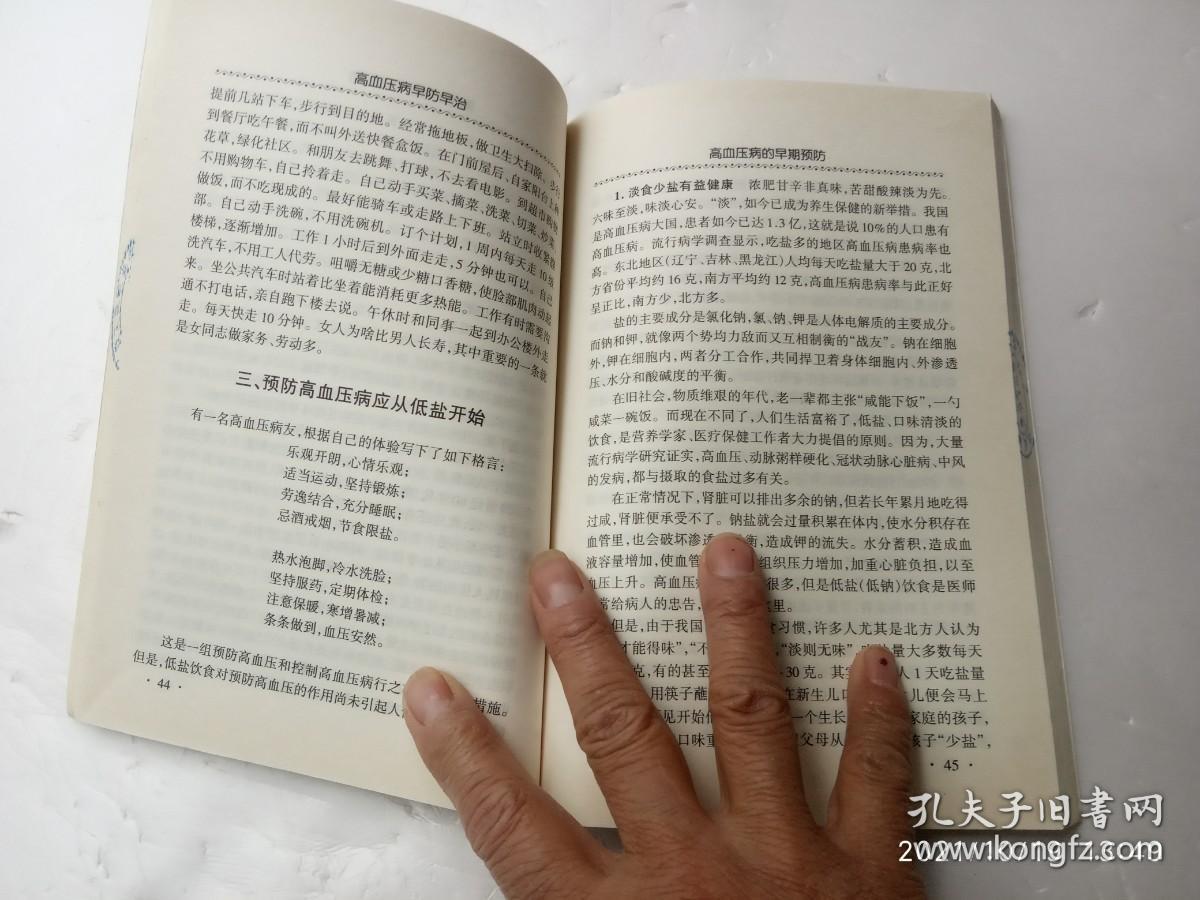 高血压病早防早治
提前几站下车,步行到目的地。经常拖地板,做卫生大扫除。步行
到餐厅吃午餐,而不叫外送快餐盒饭。在门前屋后、自家阳台上种
花草,绿化社区。和朋友去跳舞、打球,不去看电影。到超市购物
不用购物车,自己拎着走。自己动手买菜、摘菜、洗菜、切菜、炒菜
做饭,而不吃现成的。最好能骑车或走路上下班。站立时收紧
部。自己动手洗碗,不用洗碗机。订个计划,1周内每天走10级
楼梯,逐渐增加。工作1小时后到外面走走,5分钟也可以。自己
洗汽车,不用工人代劳。咀嚼无糖或少糖口香糖,使脸部肌肉动起
来。坐公共汽车时站着比坐着能消耗更多热能。工作有时需要沟
通不打电话,亲自跑下楼去说。午休时和同事一起到办公楼外走
走。每天快走10分钟。女人为啥比男人长寿,其中重要的一条就
是女同志做家务、劳动多。
三、预防高血压病应从低盐开始
有一名高血压病友,根据自己的体验写下了如下格言:
乐观开朗,心情乐观;
适当运动,坚持锻炼;
劳逸结合,充分睡眠;
忌酒戒烟,节食限盐。
热水泡脚,冷水洗脸;
坚持服药,定期体检;
注意保暖,寒增暑减;
条条做到,血压安然。
这是一组预防高血压和控制高血压病行之 措施。
但是,低盐饮食对预防高血压的作用尚未引起人
·44·
高血压病的早期预防
1. 淡食少盐有益健康 浓肥甘辛非真味,苦甜酸辣淡为先。
六味至淡,味淡心安。“淡”,如今已成为养生保健的新举措。我国
是高血压病大国,患者如今已达1.3亿,这就是说10%的人口患有
高血压病。流行病学调查显示,吃盐多的地区高血压病患病率也
高。东北地区(辽宁、吉林、黑龙江)人均每天吃盐量大于20克,北
方省份平均约16克,南方平均约12克,高血压病患病率与此正好
呈正比,南方少,北方多。
盐的主要成分是氯化钠,氯、钠、钾是人体电解质的主要成分。
而钠和钾,就像两个势均力敌而又互相制衡的“战友”。钠在细胞
外,钾在细胞内,两者分工合作,共同捍卫着身体细胞内、外渗透
压、水分和酸碱度的平衡。
在旧社会,物质维艰的年代,老一辈都主张“咸能下饭”,一勺
咸菜一碗饭。而现在不同了,人们生活富裕了,低盐、口味清淡的
饮食,是营养学家、医疗保健工作者大力提倡的原则。因为,大量
流行病学研究证实,高血压、动脉粥样硬化、冠状动脉心脏病、中风
的发病,都与摄取的食盐过多有关。
在正常情况下,肾脏可以排出多余的钠,但若长年累月地吃得
过咸,肾脏便承受不了。钠盐就会过量积累在体内,使水分积存在
血管里,也会破坏渗透 衡,造成钾的流失。水分蓄积,造成血
液容量增加,使血管 组织压力增加,加重心脏负担,以至
血压上升。高血压 很多,但是低盐(低钠)饮食是医师
常给病人的忠告, 里。
但是,由于我国 食习惯,许多人尤其是北方人认为
才能得味”,“不 “淡则无味”, 量大多数每天
克,有的甚至 30克。其实 人1天吃盐量
用筷子蘸 在新生儿口 儿便会马上
见开始他 一个生长 家庭的孩子,
口味重 父母从 孩子“少盐”,
·45·
孔夫子旧书网
www.kongfz.com